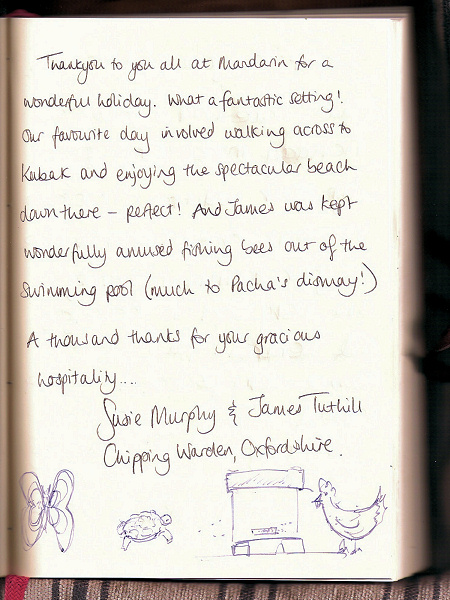 Thankyou to you all at Mandarin for a
wonderful holiday. What a fantastic setting!
Our favourite day involved walking across to
Kabak and enjoying the spectacular beach
down there – perfect! And James was kept
wonderfully amused fishing bees out of the
swimming pool (much to Pacha's dismay!)
A thousand thanks for your gracious
hospitality....
Susie Murphy & James Tuthill
Chipping Warden, Oxfordshire.